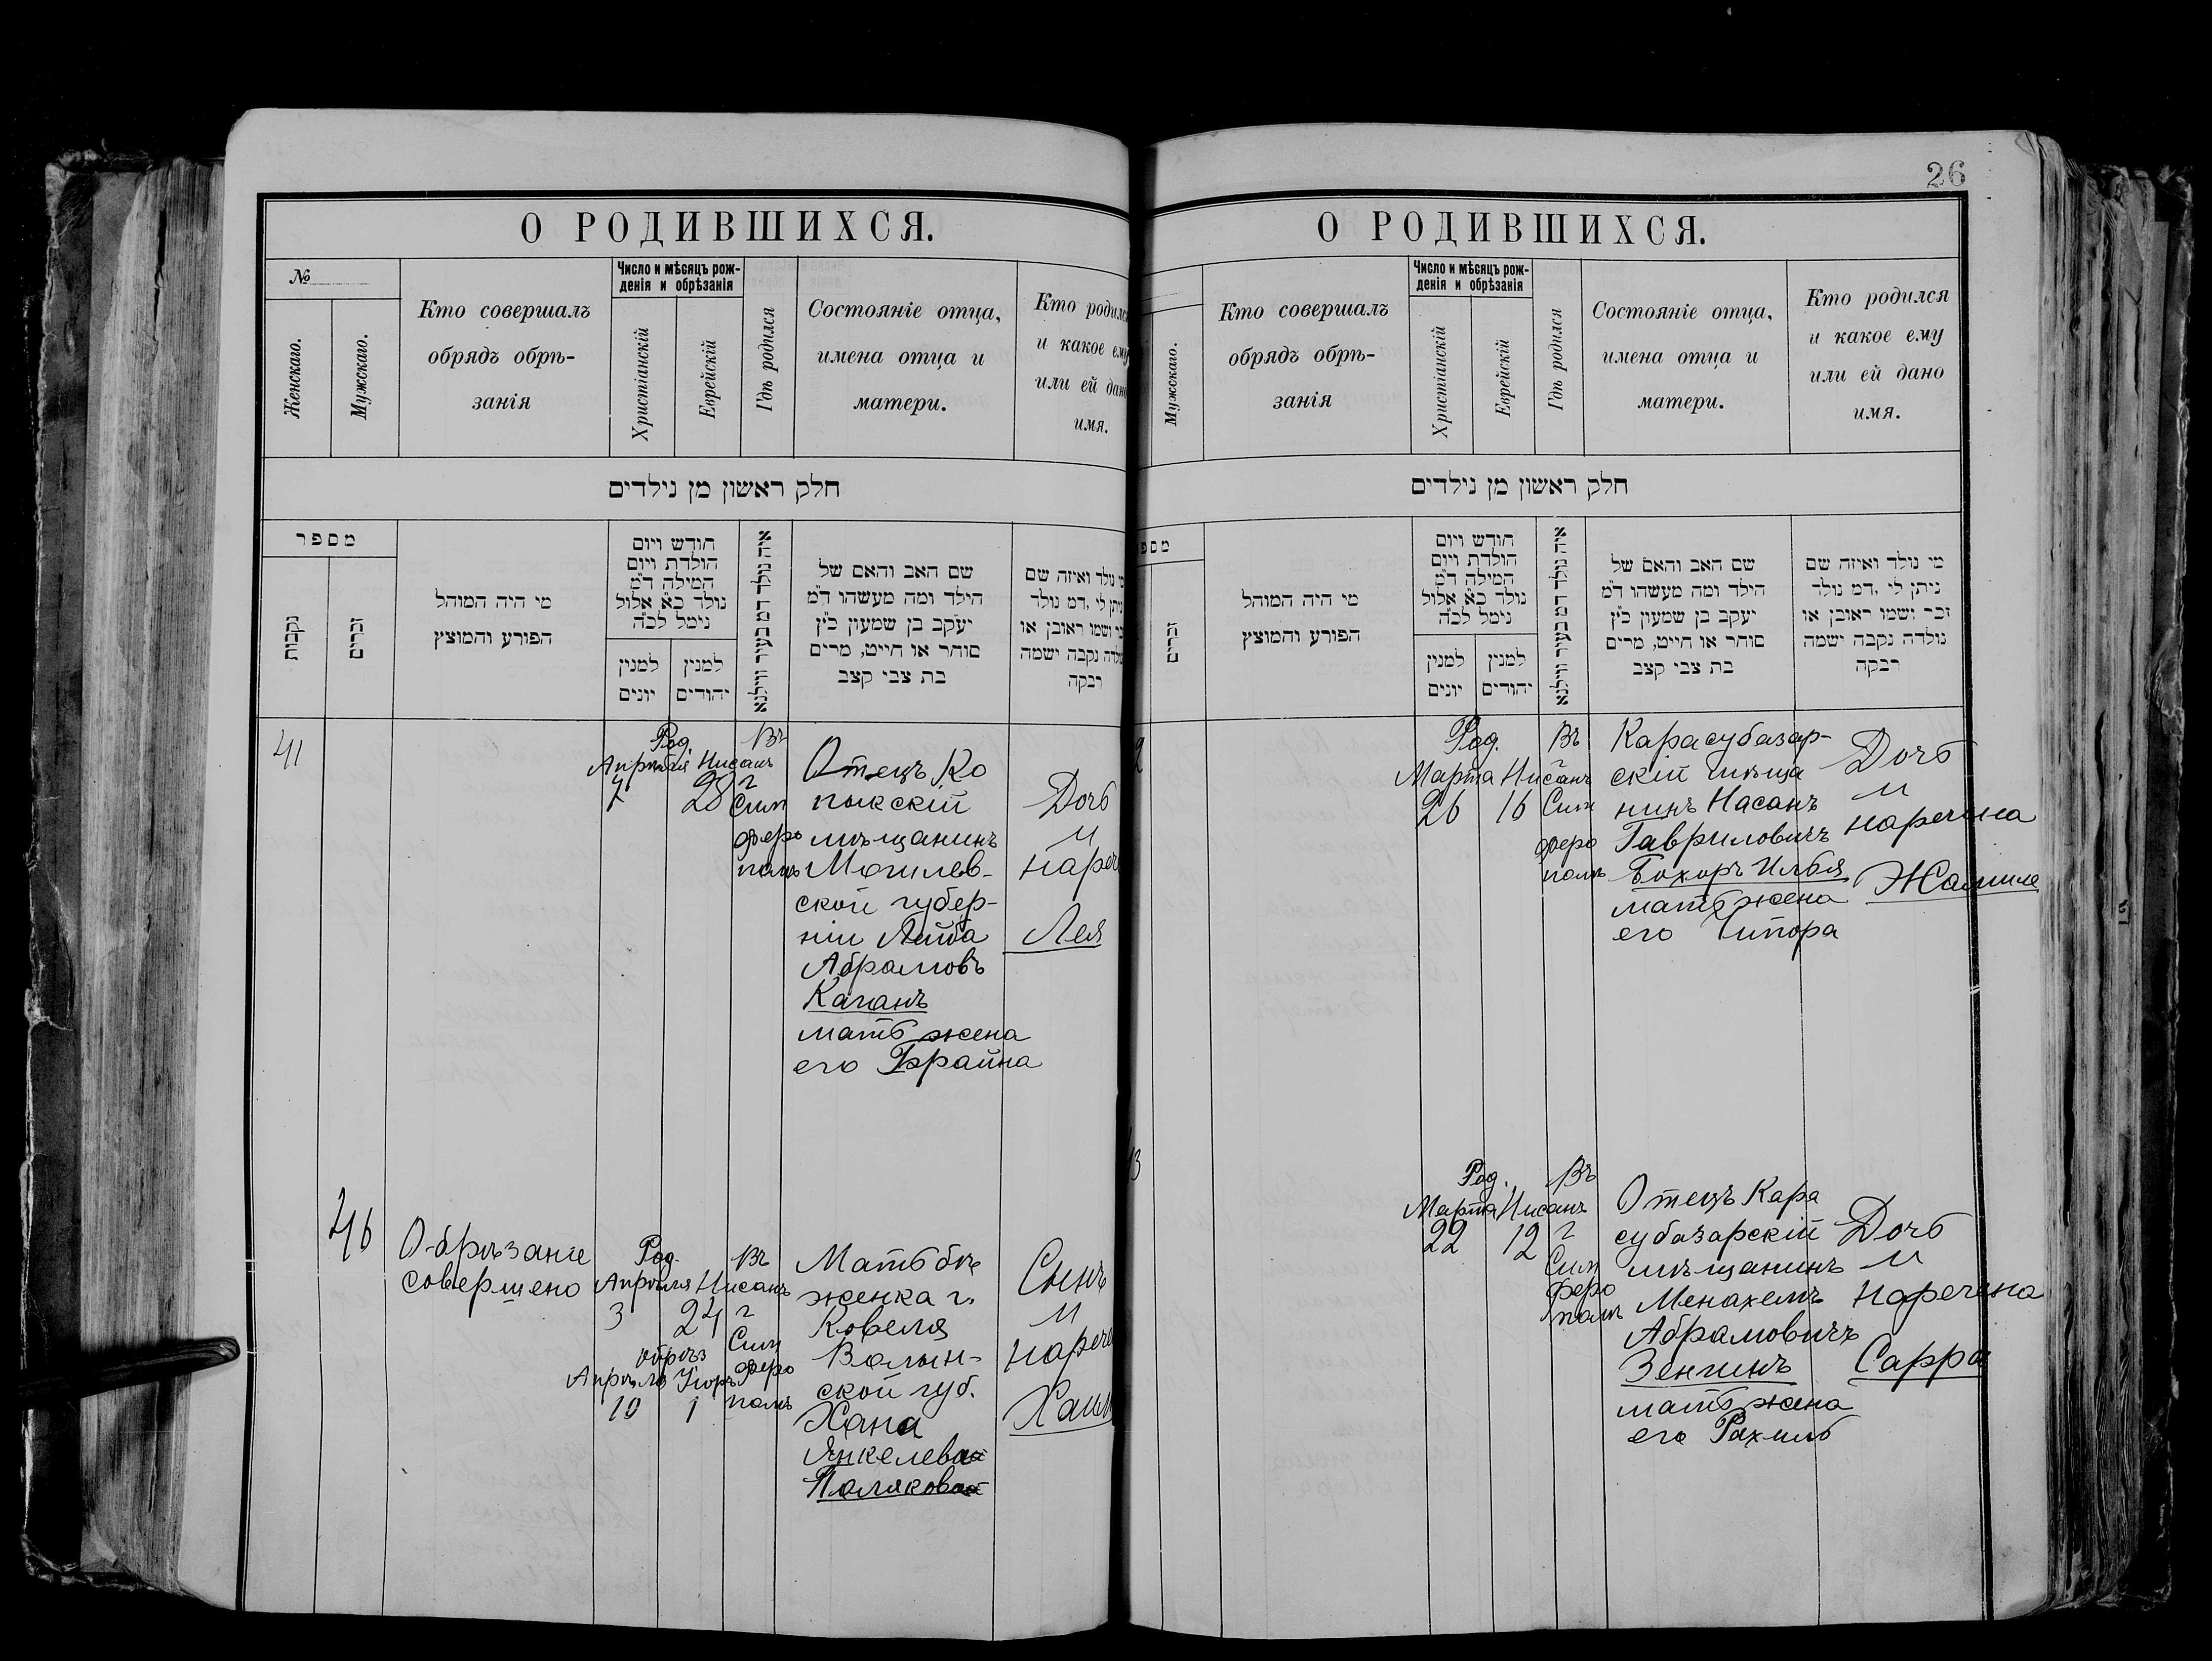 О РОДИВШИХСЯ.
№
Женскаго.
Мужскаго.
Кто совершалъ
обрядъ обрѣ-
занія
Число и мѣсяцъ рож-
денія и обрѣзанія
Христіанскій
Еврейскій
Гдѣ родился
Состояніе отца,
имена отца и
матери.
Кто родился
и какое ему
или ей дано
имя.
חלק ראשון מן נילדים
מספר
נקבות
זכרים
מי היה המוהל
הפורע והמוצץ
חודש ויום
הולדת ויום
המילה ד"מ
נולד כ"א אלול
נימל לכ"ה
למנין
יונים
למנין
יהודים
איה נולד דמ בעיר ווילנא
שם האב והאם של
הילד ומה מעשהו ד"מ
יעקב בן שמעון כ"ץ
סוחר או חייט, מרים
בת צבי קצב
מי נולד ואיזה שם
ניתן לי ,דמ נולד
זכר ושמו ראובן או
נולדה נקבה ישמה
רבקה
41
Род.
Апрѣля Нисанъ
7 28
Въ
г
Сим
феро
полѣ
Отецъ Ко
пыкскій
мѣщанинъ
Могилев-
ской губер-
ніи Лейба
Абрамовъ
Каганъ
мать жена
его Брайна
Дочь
и
нарече
Лея
46
Обрѣзаніе
совершено
Род.
Апрѣля Нисанъ
3 24
обрѣз
Апрѣля Іюръ
10 1
Въ
г
Сим
феро
полѣ
Мать бѣ
женка г.
Ковеля
Волын-
ской губ.
Хана
Янкелева
Полякова
Сынъ
и
нарече
Хаим
26
О РОДИВШИХСЯ.
Мужскаго.
Кто совершалъ
обрядъ обрѣ-
занія
Число и мѣсяцъ рож-
денія и обрѣзанія
Христіанскій
Еврейскій
Гдѣ родился
Состояніе отца,
имена отца и
матери.
Кто родился
и какое ему
или ей дано
имя.
חלק ראשון מן נילדים
זכרים
מי היה המוהל
הפורע והמוצץ
חודש ויום
הולדת ויום
המילה ד"מ
נולד כ"א אלול
נימל לכ"ה
למנין
יונים
למנין
יהודים
איה נולד דמ בעיר ווילנא
שם האב והאם של
הילד ומה מעשהו ד"מ
יעקב בן שמעון כ"ץ
סוחר או חייט, מרים
בת צבי קצב
מי נולד ואיזה שם
ניתן לי ,דמ נולד
זכר ושמו ראובן או
נולדה נקבה ישמה
רבקה
2
Род.
Марта Нисанъ
26 16
Въ
г
Сим
феро
полѣ
Карасубазар-
скій мѣща
нинъ Насанъ
Гавриловичъ
Бохоръ Илья
мать жена
его Ципора
Дочь
и
наречена
Жамиле
3
Род.
Марта Нисанъ
22 12
Въ
г
Сим
феро
полѣ
Отецъ Кара
субазарскій
мѣщанинъ
Менахемъ
Абрамовичъ
Зенгинъ
мать жена
его Рахиль
Дочь
и
наречена
Сарра